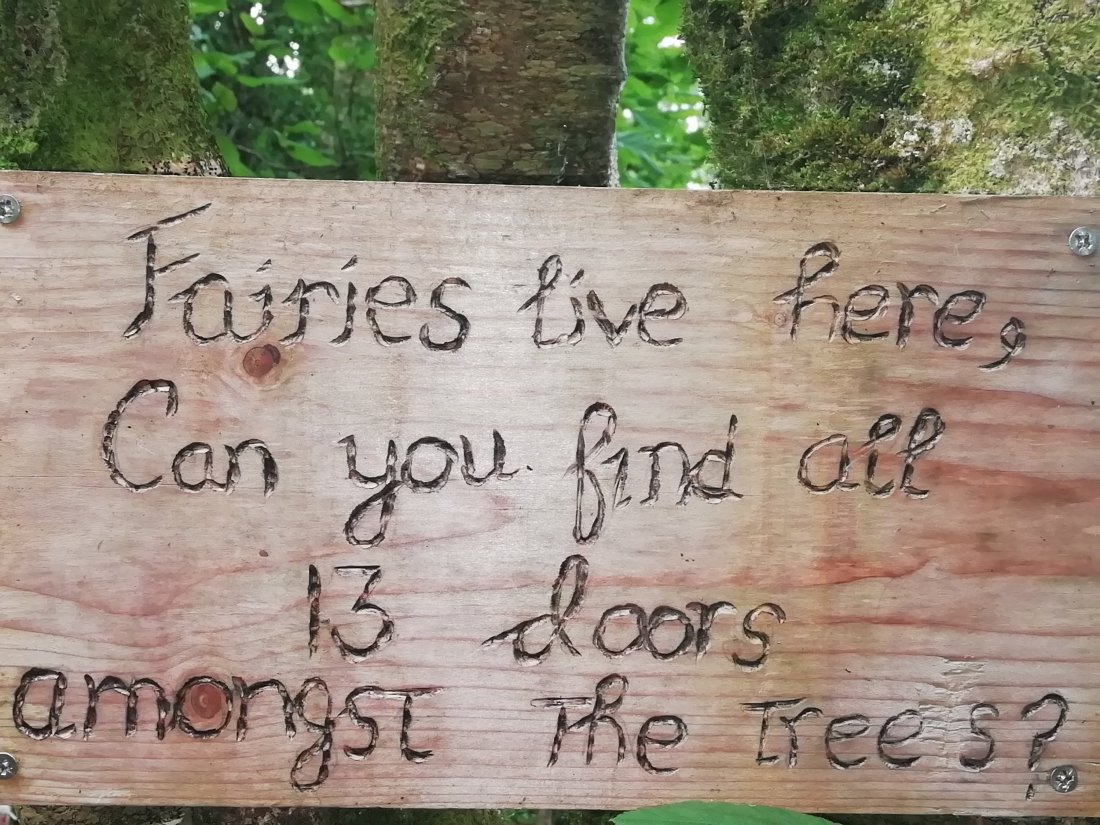 Fairies live here,
Can you find all
13 doors
amongst the trees?